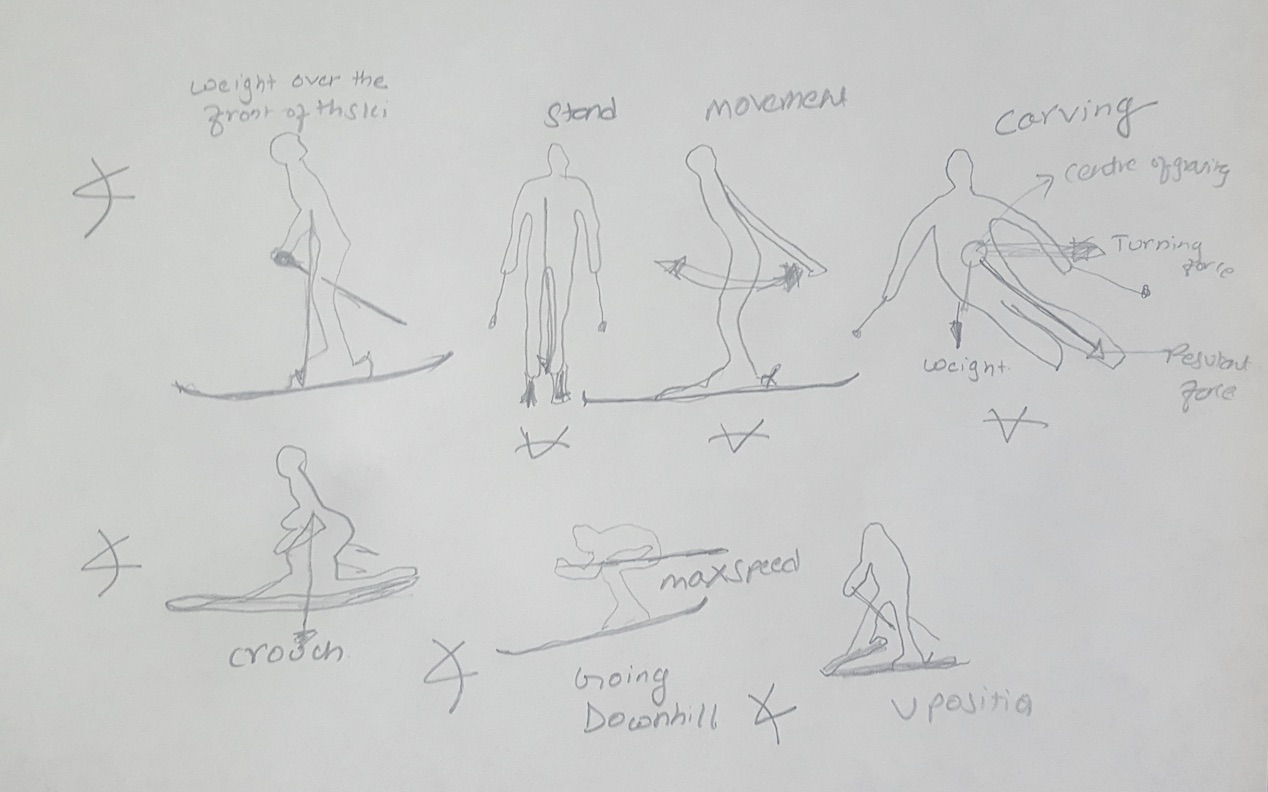 weight over the
front of thski
Stand
movement
Carving
centre of graving
Turning
force
weight
Resultant
force
crouch
maxspeed
Going
Downhill
V positio